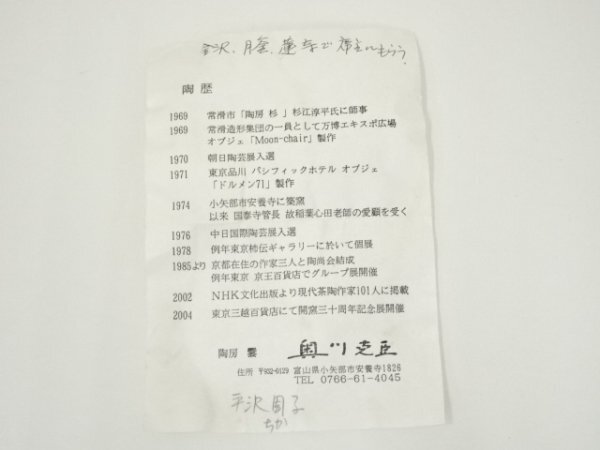 陶歴
1969 常滑市「陶房 杉」杉江淳平氏に師事
1969 常滑造形集団の一員として万博エキスポ広場
オブジェ「Moon-chair」製作
1970 朝日陶芸展入選
1971 東京品川 パシフィックホテル オブジェ
「ドルメン71」製作
1974 小矢部市安養寺に築窯
以来 国泰寺管長 故稲葉心田老師の愛顧を受く
1976 中日国際陶芸展入選
1978 例年東京柿伝ギャラリーに於いて個展
1985より 京都在住の作家三人と陶尚会結成
例年東京 京王百貨店でグループ展開催
2002 NHK文化出版より現代茶陶作家101人に掲載
2004 東京三越百貨店にて開窯三十周年記念展開催
陶房 雲
住所 〒932-0129 富山県小矢部市安養寺1826
TEL 0766-61-4045
平沢周子
ちか